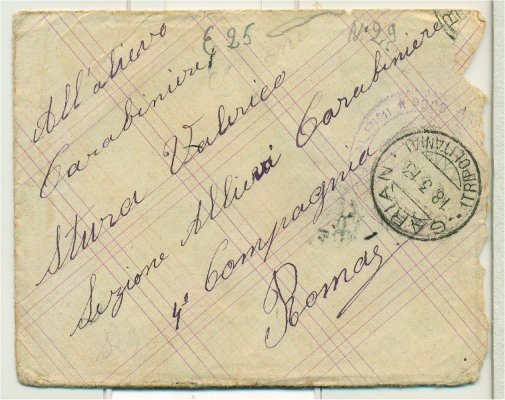 € 25
N. 29
All'allievo
Carabiniere
Stura Valerico
Sezione Allievi Carabiniere
4ª Compagnia
Roma
GARIAN
18.3.13
(TRIPOLITANIA)